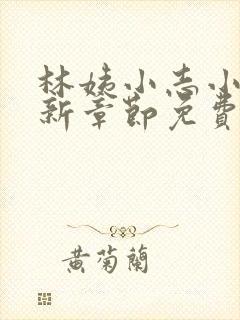 林姨小志小
新章節免費
黃菊蘭